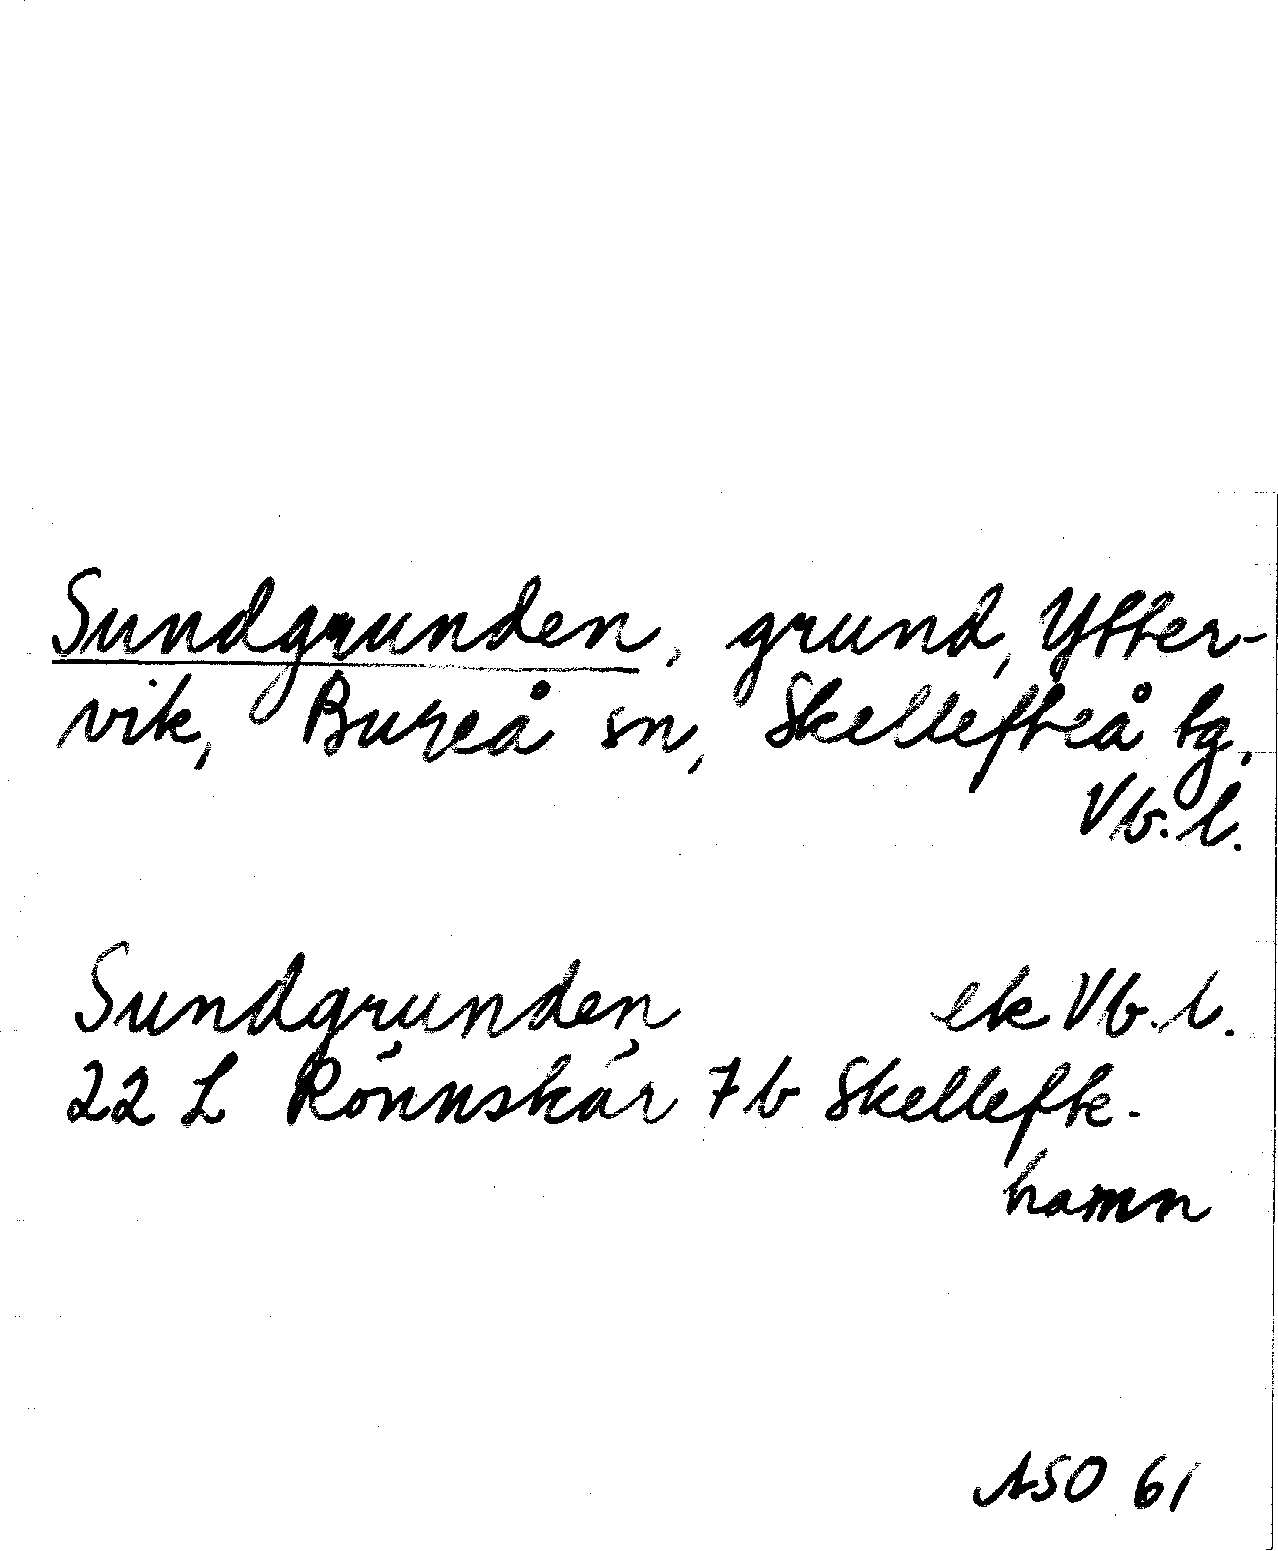 Sundgrunden, grund, Ytter-
vik, Bureå sn, Skellefteå tg,
Vb. l.
Sundgrunden ek Vb. l.
22 L Rönnskär 7b Skellefte-
hamn
ASO 61